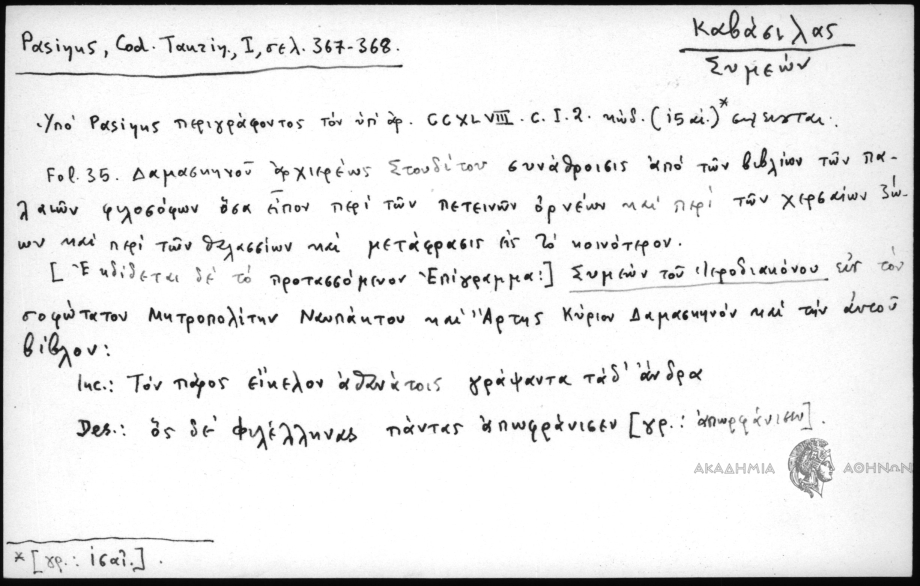 Pasinus, Cod. Taurin., I, σελ. 367-368.
Καβάσιλας
Συμεών
Ὑπό Pasinus περιγράφοντος τὸν ὑπ' ἀρ. CCXLVIII. C. I. 2. κώδ. (15 αἰ.)*
Fol. 35. Δαμασκηνοῦ ἀρχιερέως Στουδίτου συνάθροισις ἀπό τῶν βιβλίων τῶν πα-
λαιῶν φιλοσόφων ὅσα εἶπον περί τῶν πετεινῶν ὀρνέων καί περί τῶν χερσαίων ζώ-
ων καί περί τῶν θαλασσίων καί μετάφρασις εἰς τό κοινότερον.
[Ἐκδίδεται δέ τό προτασσόμενον Ἐπίγραμμα:] Συμεών τοῦ Ἱεροδιακόνου εἰς τόν
σοφώτατον Μητροπολίτην Ναυπάκτου καί Ἄρτης Κύριον Δαμασκηνόν καί τήν αὐτοῦ
βίβλον:
Inc.: Τόν πάρος εἴκελον ἀθανάτοις γράψαντα τάδ' ἄνδρα
Des.: ὅς δέ φιλέλληνας πάντας ἀπωφράνισεν [γρ.: ἀπωρφάνισεν].
ΑΚΑΔΗΜΙΑ ΑΘΗΝΩΝ
* [γρ.: ις αἰ.].